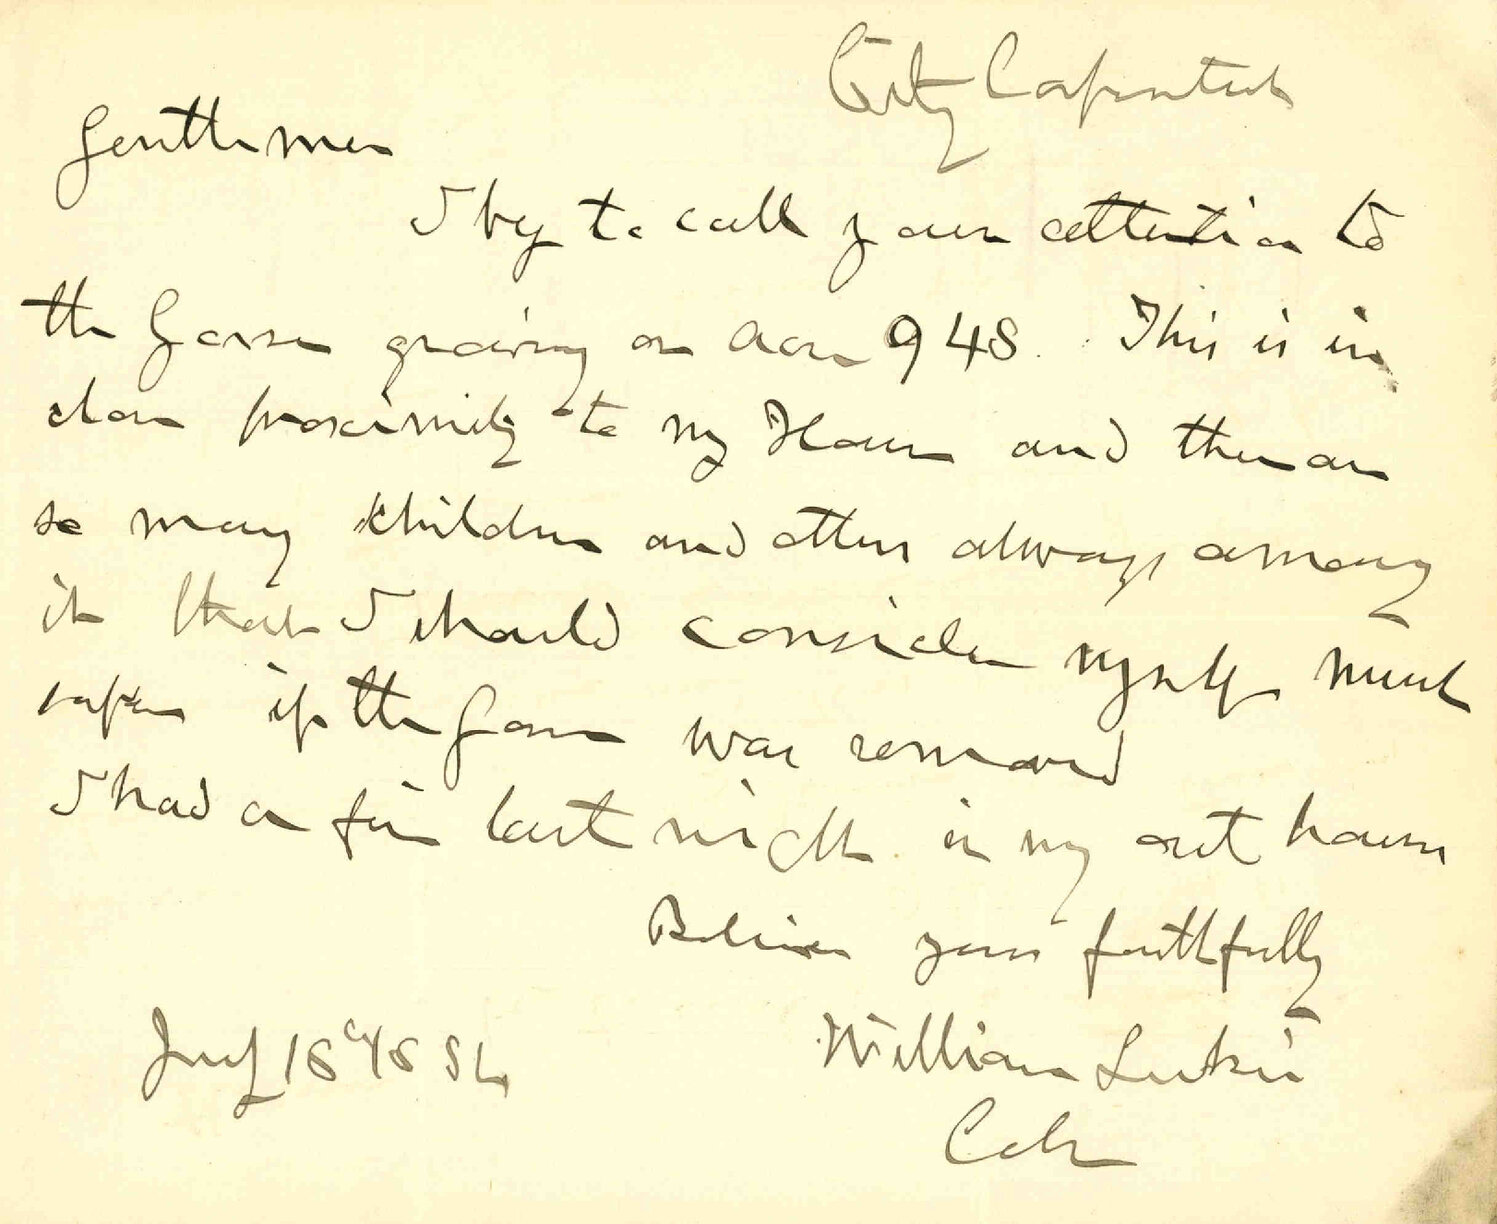 City Carpenter
Gentlemen
I beg to call your attention to
the Gorse growing on Acre 948. This is in
close proximity to my House and there are
so many children and others always among
it that I should consider myself much
safer if the Gorse was removed
I had a fire last night in my out house
Believe yours faithfully
William
July 18